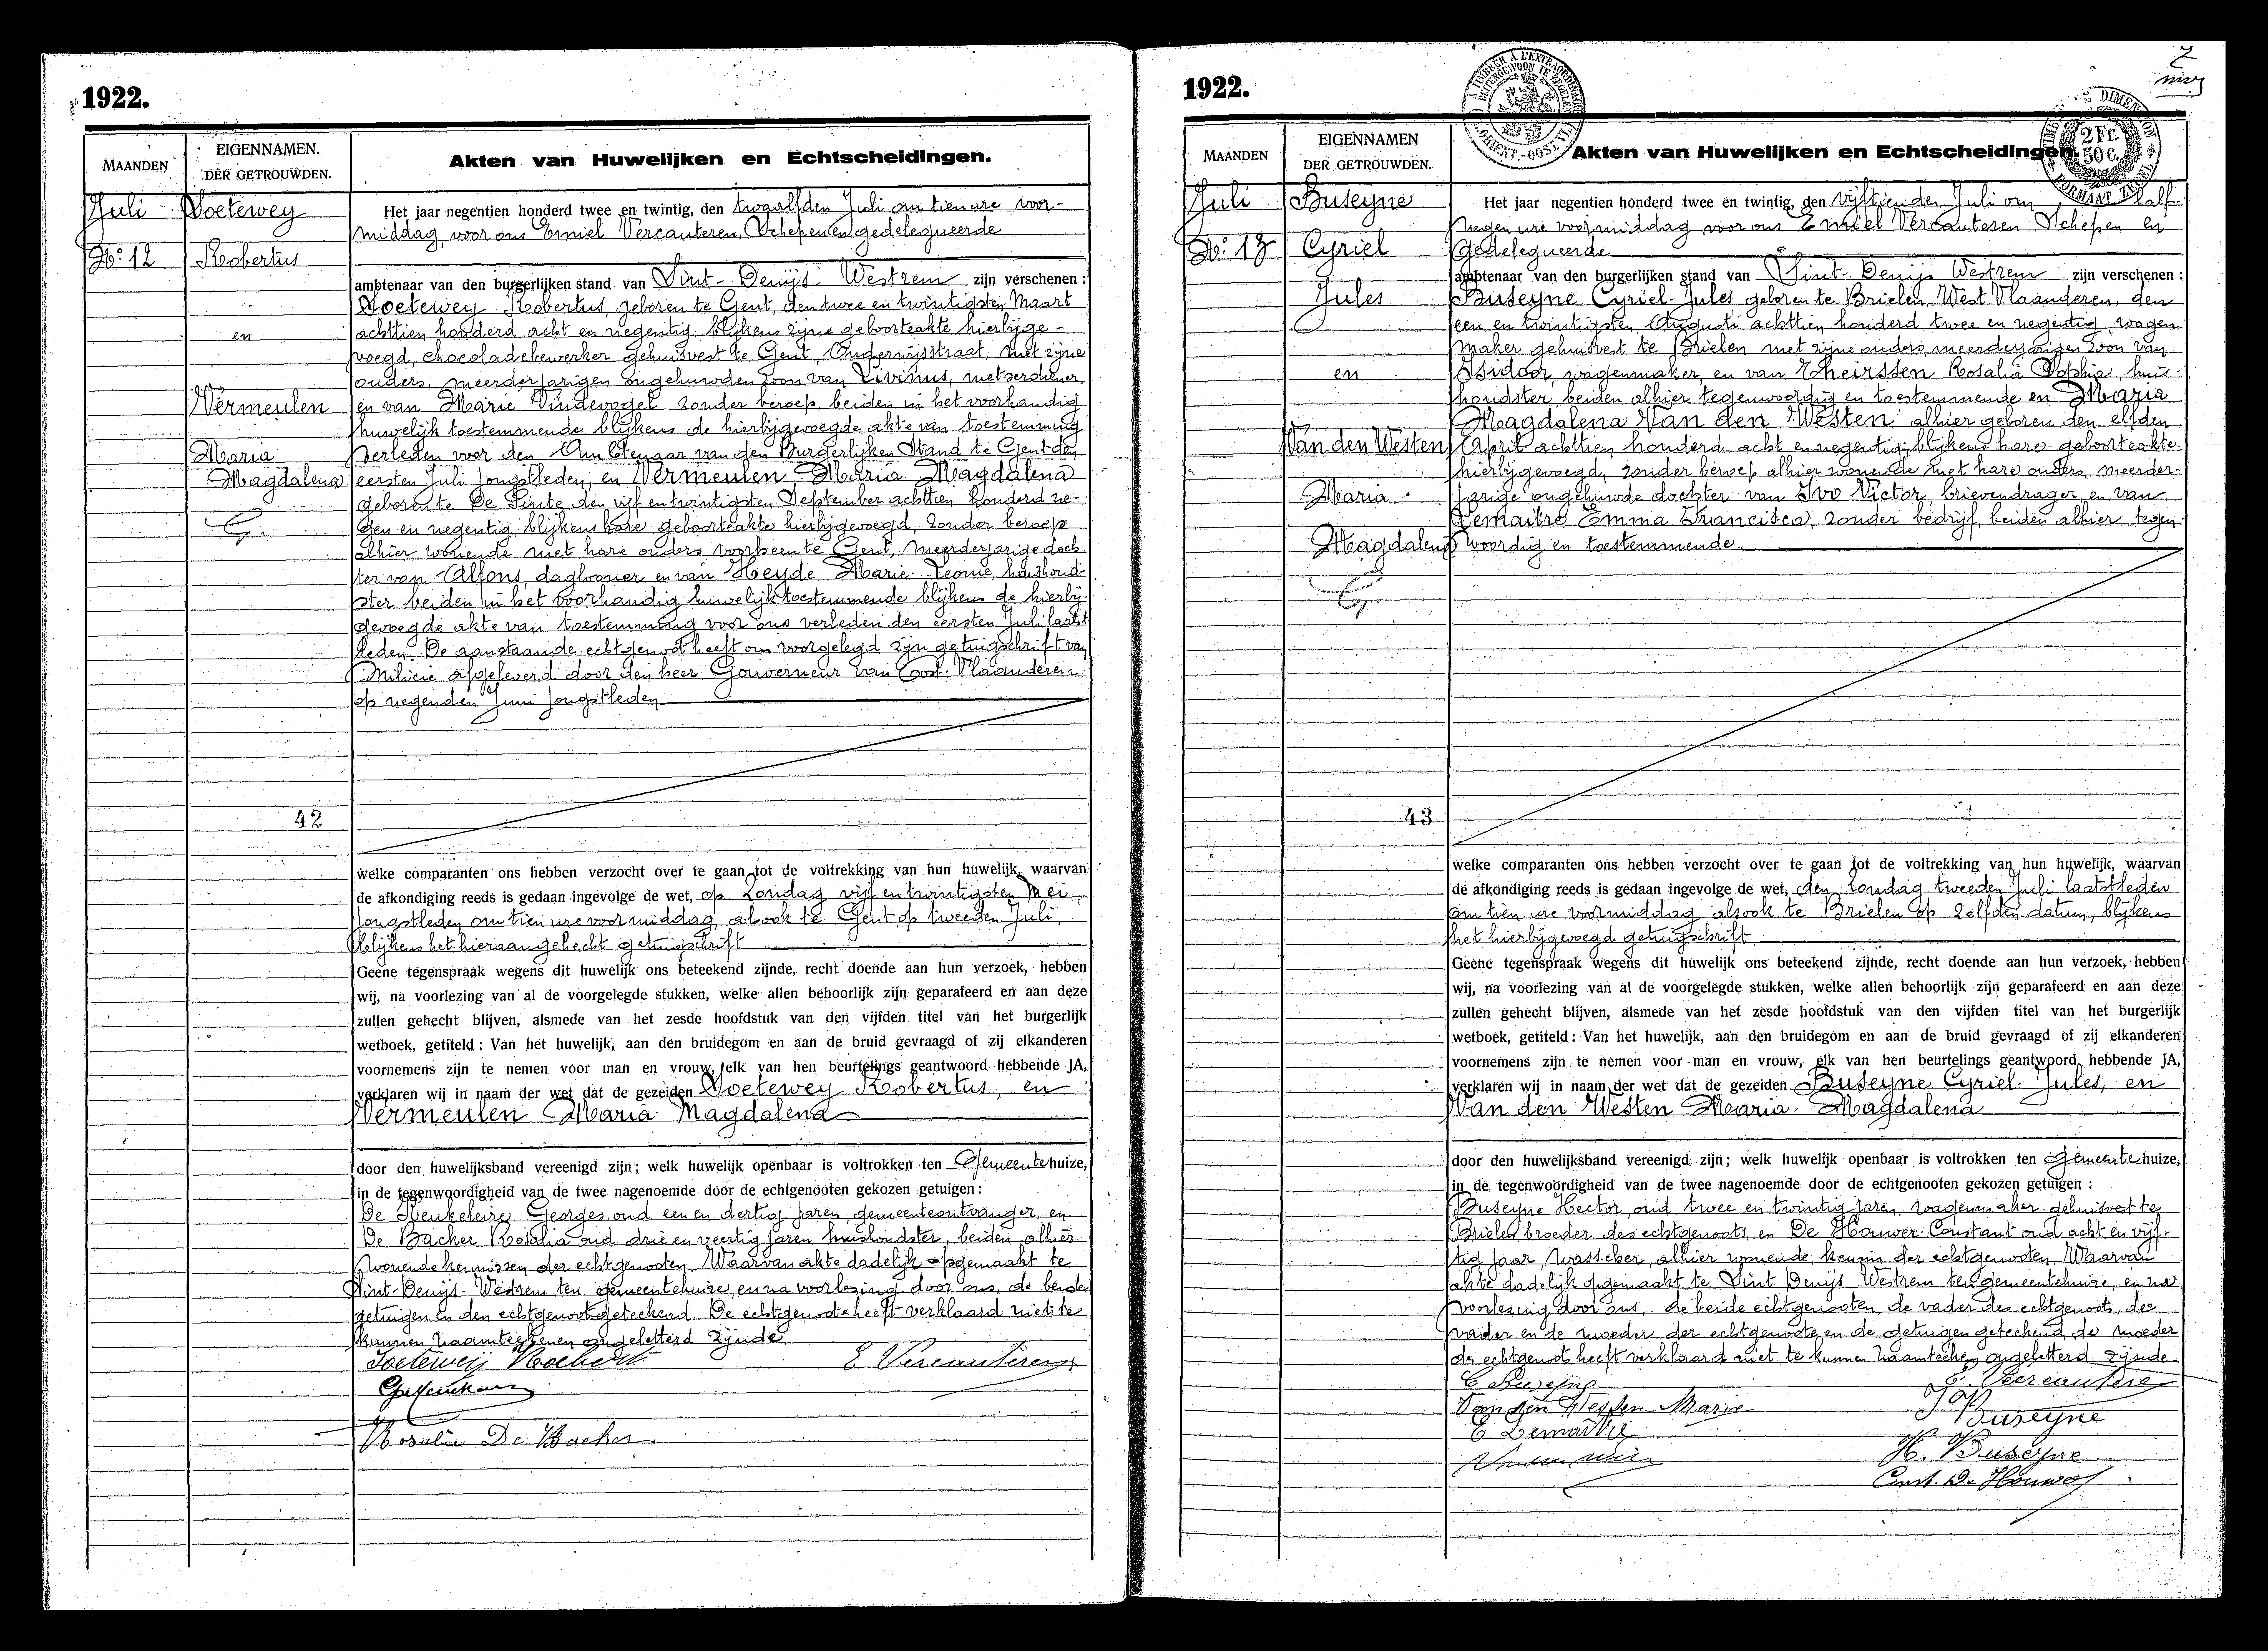 1922.
MAANDEN
EIGENNAMEN.
DER GETROUWDEN.
Akten van Huwelijken en Echtscheidingen.
Juli
Soetewey
Het jaar negentien honderd twee en twintig, den twaalfden Juli om tien ure voor-
middag, voor ons Emiel Vercauteren, Schepen en gedelegueerde
No: 12
Robertus
ambtenaar van den burgerlijken stand van Sint-Denijs-Westrem zijn verschenen :
Soetewey Robertus, geboren te Gent, den twee en twintigsten Maart
achttien honderd acht en negentig, blijkens zijne geboorteakte hierbijge-
en
voegd, chocoladebewerker gehuisvest te Gent, Onderwijsstraat, met zijne
ouders, meerderjarigen ongehuwden zoon van Livinus, metserdiener,
Vermeulen
en van Marie Vindevogel zonder beroep, beiden in het voorhandig
huwelijk toestemmende blijkens de hierbijgevoegde akte van toestemming
Maria
verleden voor den Ambtenaar van den Burgerlijken Stand te Gent den
Magdalena
eersten Juli jongstleden, en Vermeulen Maria Magdalena
geboren te De Pinte den vijf en twintigsten September achttien honderd ne-
gen en negentig, blijkens hare geboorteakte hierbijgevoegd, zonder beroep
alhier wonende met hare ouders voorheen te Gent, meerderjarige doch-
ter van Alfons, daglooner en van Heyde Marie-Leonie, huishoud-
ster beiden in het voorhandig huwelijk toestemmende blijkens de hierbij-
gevoegde akte van toestemming voor ons verleden den eersten Juli laatst
leden. De aanstaande echtgenoot heeft ons voorgelegd zijn getuigschrift van
Milicie afgeleverd door den heer Gouverneur van Oost-Vlaanderen
op negenden Juni jongstleden
42
welke comparanten ons hebben verzocht over te gaan tot de voltrekking van hun huwelijk, waarvan
de afkondiging reeds is gedaan ingevolge de wet, op Zondag vijf en twintigsten Mei
jongstleden om tien ure voormiddag, alsook te Gent op tweeden Juli,
blijkens het hieraangehecht getuigschrift
Geene tegenspraak wegens dit huwelijk ons beteekend zijnde, recht doende aan hun verzoek, hebben
wij, na voorlezing van al de voorgelegde stukken, welke allen behoorlijk zijn geparafeerd en aan deze
zullen gehecht blijven, alsmede van het zesde hoofdstuk van den vijfden titel van het burgerlijk
wetboek, getiteld : Van het huwelijk, aan den bruidegom en aan de bruid gevraagd of zij elkanderen
voornemens zijn te nemen voor man en vrouw, elk van hen beurtelings geantwoord hebbende JA,
verklaren wij in naam der wet dat de gezeiden Soetewey Robertus, en
Vermeulen Maria Magdalena
door den huwelijksband vereenigd zijn ; welk huwelijk openbaar is voltrokken ten Gemeentehuize,
in de tegenwoordigheid van de twee nagenoemde door de echtgenooten gekozen getuigen :
De Keukeleire Georges oud een en dertig jaren, gemeenteontvanger, en
De Backer Rosalia oud drie en veertig jaren huishoudster, beiden alhier
wonende kennissen der echtgenooten. Waarvan akte dadelijk opgemaakt te
Sint-Denijs-Westrem ten gemeentehuize, en na voorlezing door ons, de beide
getuigen en den echtgenoot geteekend. De echtgenoote heeft verklaard niet te
kunnen naamteekenen ongeletterd zijnde.
Soeteweij Robert E Vercauteren
Rosalie De Backer
1922.
A TIMBRER A L'EXTRAORDINAIRE
BUITENGEWOON TE ZEGELEN
2 Fr.
50 C.
MAANDEN
EIGENNAMEN
DER GETROUWDEN.
Akten van Huwelijken en Echtscheidingen.
Juli
Buseyne
Het jaar negentien honderd twee en twintig, den vijftienden Juli om half
negen ure voormiddag voor ons Emiel Vercauteren Schepen en
No: 13
Cyriel
gedelegueerde
ambtenaar van den burgerlijken stand van Sint-Denijs Westrem zijn verschenen :
Jules
Buseyne Cyriel-Jules geboren te Brielen, West Vlaanderen, den
een en twintigsten Augusti achttien honderd twee en negentig, wagen
maker gehuisvest te Brielen met zijne ouders meerderjarigen zoon van
en
Isidoor, wagenmaker, en van Theirssen Rosalia Sophia, huis-
houdster, beiden alhier tegenwoordig en toestemmende en Maria
Magdalena Van den Westen alhier geboren den elfden
Van den Westen
April achttien honderd acht en negentig, blijkens hare geboorteakte
hierbijgevoegd, zonder beroep alhier wonende met hare ouders, meerder-
Maria
jarige ongehuwde dochter van Ivo Victor, brievendrager, en van
Lemaitre Emma Francisca, zonder bedrijf, beiden alhier tegen-
Magdalena
woordig en toestemmende.
43
welke comparanten ons hebben verzocht over te gaan tot de voltrekking van hun huwelijk, waarvan
de afkondiging reeds is gedaan ingevolge de wet, den Zondag tweeden Juli laatstleden
om tien ure voormiddag alsook te Brielen op zelfden datum, blijkens
het hierbijgevoegd getuigschrift
Geene tegenspraak wegens dit huwelijk ons beteekend zijnde, recht doende aan hun verzoek, hebben
wij, na voorlezing van al de voorgelegde stukken, welke allen behoorlijk zijn geparafeerd en aan deze
zullen gehecht blijven, alsmede van het zesde hoofdstuk van den vijfden titel van het burgerlijk
wetboek, getiteld : Van het huwelijk, aan den bruidegom en aan de bruid gevraagd of zij elkanderen
voornemens zijn te nemen voor man en vrouw, elk van hen beurtelings geantwoord hebbende JA,
verklaren wij in naam der wet dat de gezeiden Buseyne Cyriel-Jules, en
Van den Westen Maria-Magdalena
door den huwelijksband vereenigd zijn ; welk huwelijk openbaar is voltrokken ten Gemeentehuize,
in de tegenwoordigheid van de twee nagenoemde door de echtgenooten gekozen getuigen :
Buseyne Hector, oud twee en twintig jaren, wagenmaker gehuisvest te
Brielen, broeder des echtgenoots, en De Houwer Constant oud acht en vijf-
tig jaar, wasscher, alhier wonende, kennis der echtgenooten. Waarvan
akte dadelijk opgemaakt te Sint Denijs Westrem ten gemeentehuize, en na
voorlezing door ons, de beide echtgenooten, de vader des echtgenoots, de
vader en de moeder der echtgenoote en de getuigen geteekend, de moeder
des echtgenoots heeft verklaard niet te kunnen naamteekenen ongeletterd zijnde.
C Buseyne E. Vercauteren
Van den Westen Marie
E Lemaitre Buseyne
H. Buseyne
Const. De Houwer